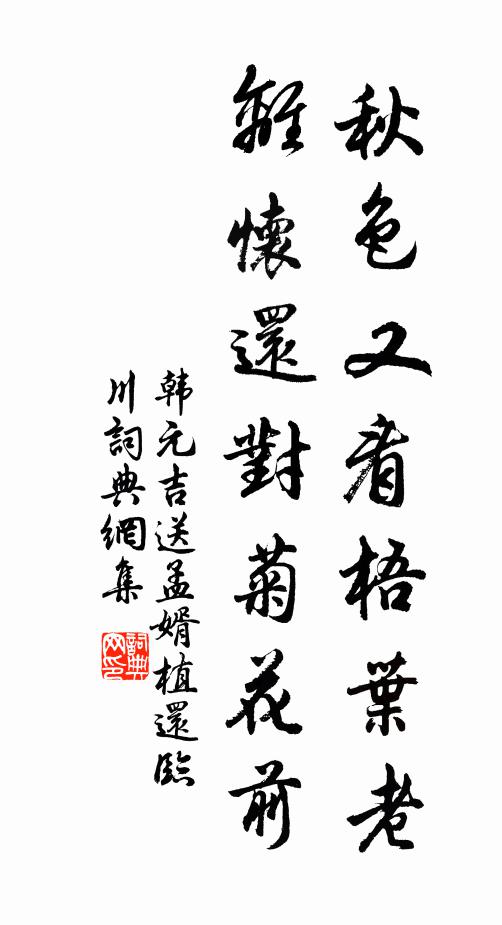 秋色又看梧葉老
離懷還對菊花前
韩元吉送孟婿植還臨
川詞典網集
詞典网印